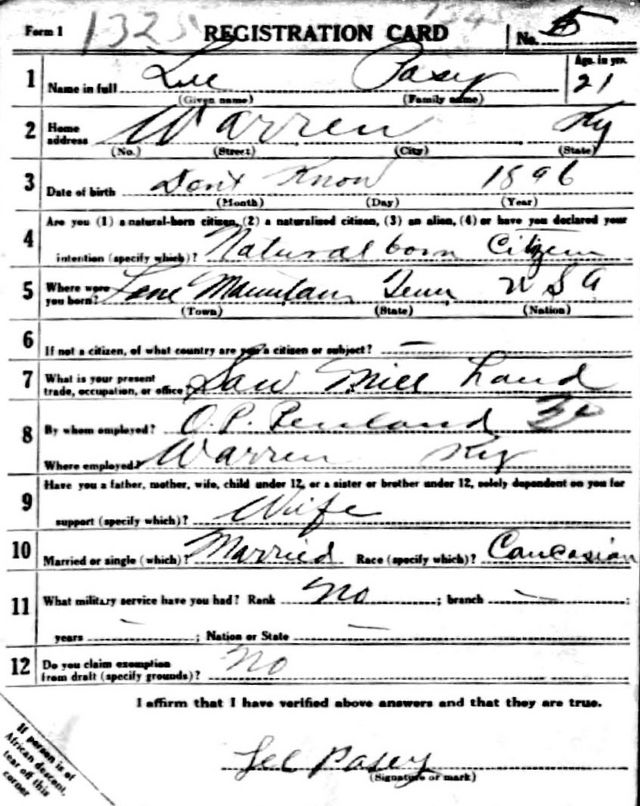 Form 1 1325 1345 REGISTRATION CARD No. 5
1 Name in full Lee Pasey Age, in yrs. 21
(Given name) (Family name)
2 Home address Warren Ky
(No.) (Street) (City) (State)
3 Date of birth Dont Know 1896
(Month) (Day) (Year)
4 Are you (1) a natural-born citizen, (2) a naturalized citizen, (3) an alien, (4) or have you declared your
intention (specify which)? Natural born Citizen
5 Where were you born? Lone Mountain Tenn U S A
(Town) (State) (Nation)
6 If not a citizen, of what country are you a citizen or subject? —
7 What is your present trade, occupation, or office? Saw Mill Hand
8 By whom employed? O.P. Penland
Where employed? Warren Ky
9 Have you a father, mother, wife, child under 12, or a sister or brother under 12, solely dependent on you for
support (specify which)? Wife
10 Married or single (which)? Married Race (specify which)? Caucasian
11 What military service have you had? Rank No ; branch — ;
years — ; Nation or State —
12 Do you claim exemption from draft (specify grounds)? No
I affirm that I have verified above answers and that they are true.
If person is of
African descent,
tear off this
corner
Lee Pasey
(Signature or mark)